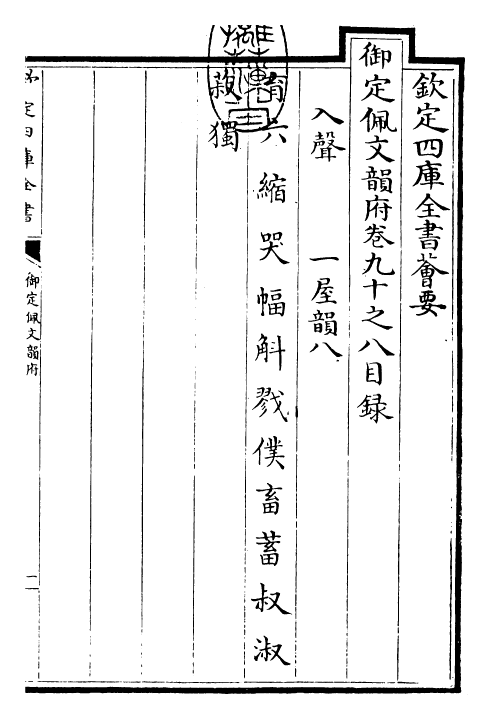 欽定四庫全書薈要
御定佩文韻府卷九十之八目録
入聲　一屋韻八
育六縮哭幅斛戮僕畜蓄叔淑
菽獨
定四庫全書
御定佩文韻府